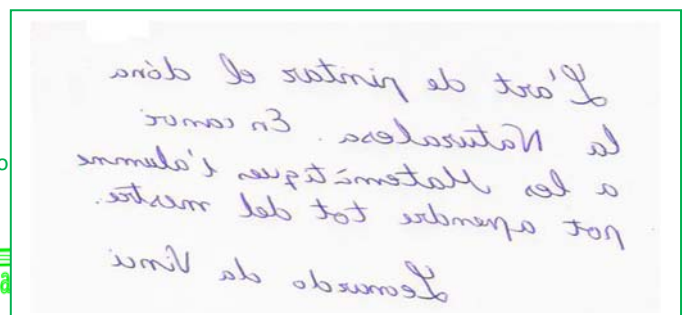 L'art de pintar el dóna
la Naturalesa. En canvi
a les Matemàtiques l'alumne
pot apendre tot del mestre.
Leonardo da Vinci